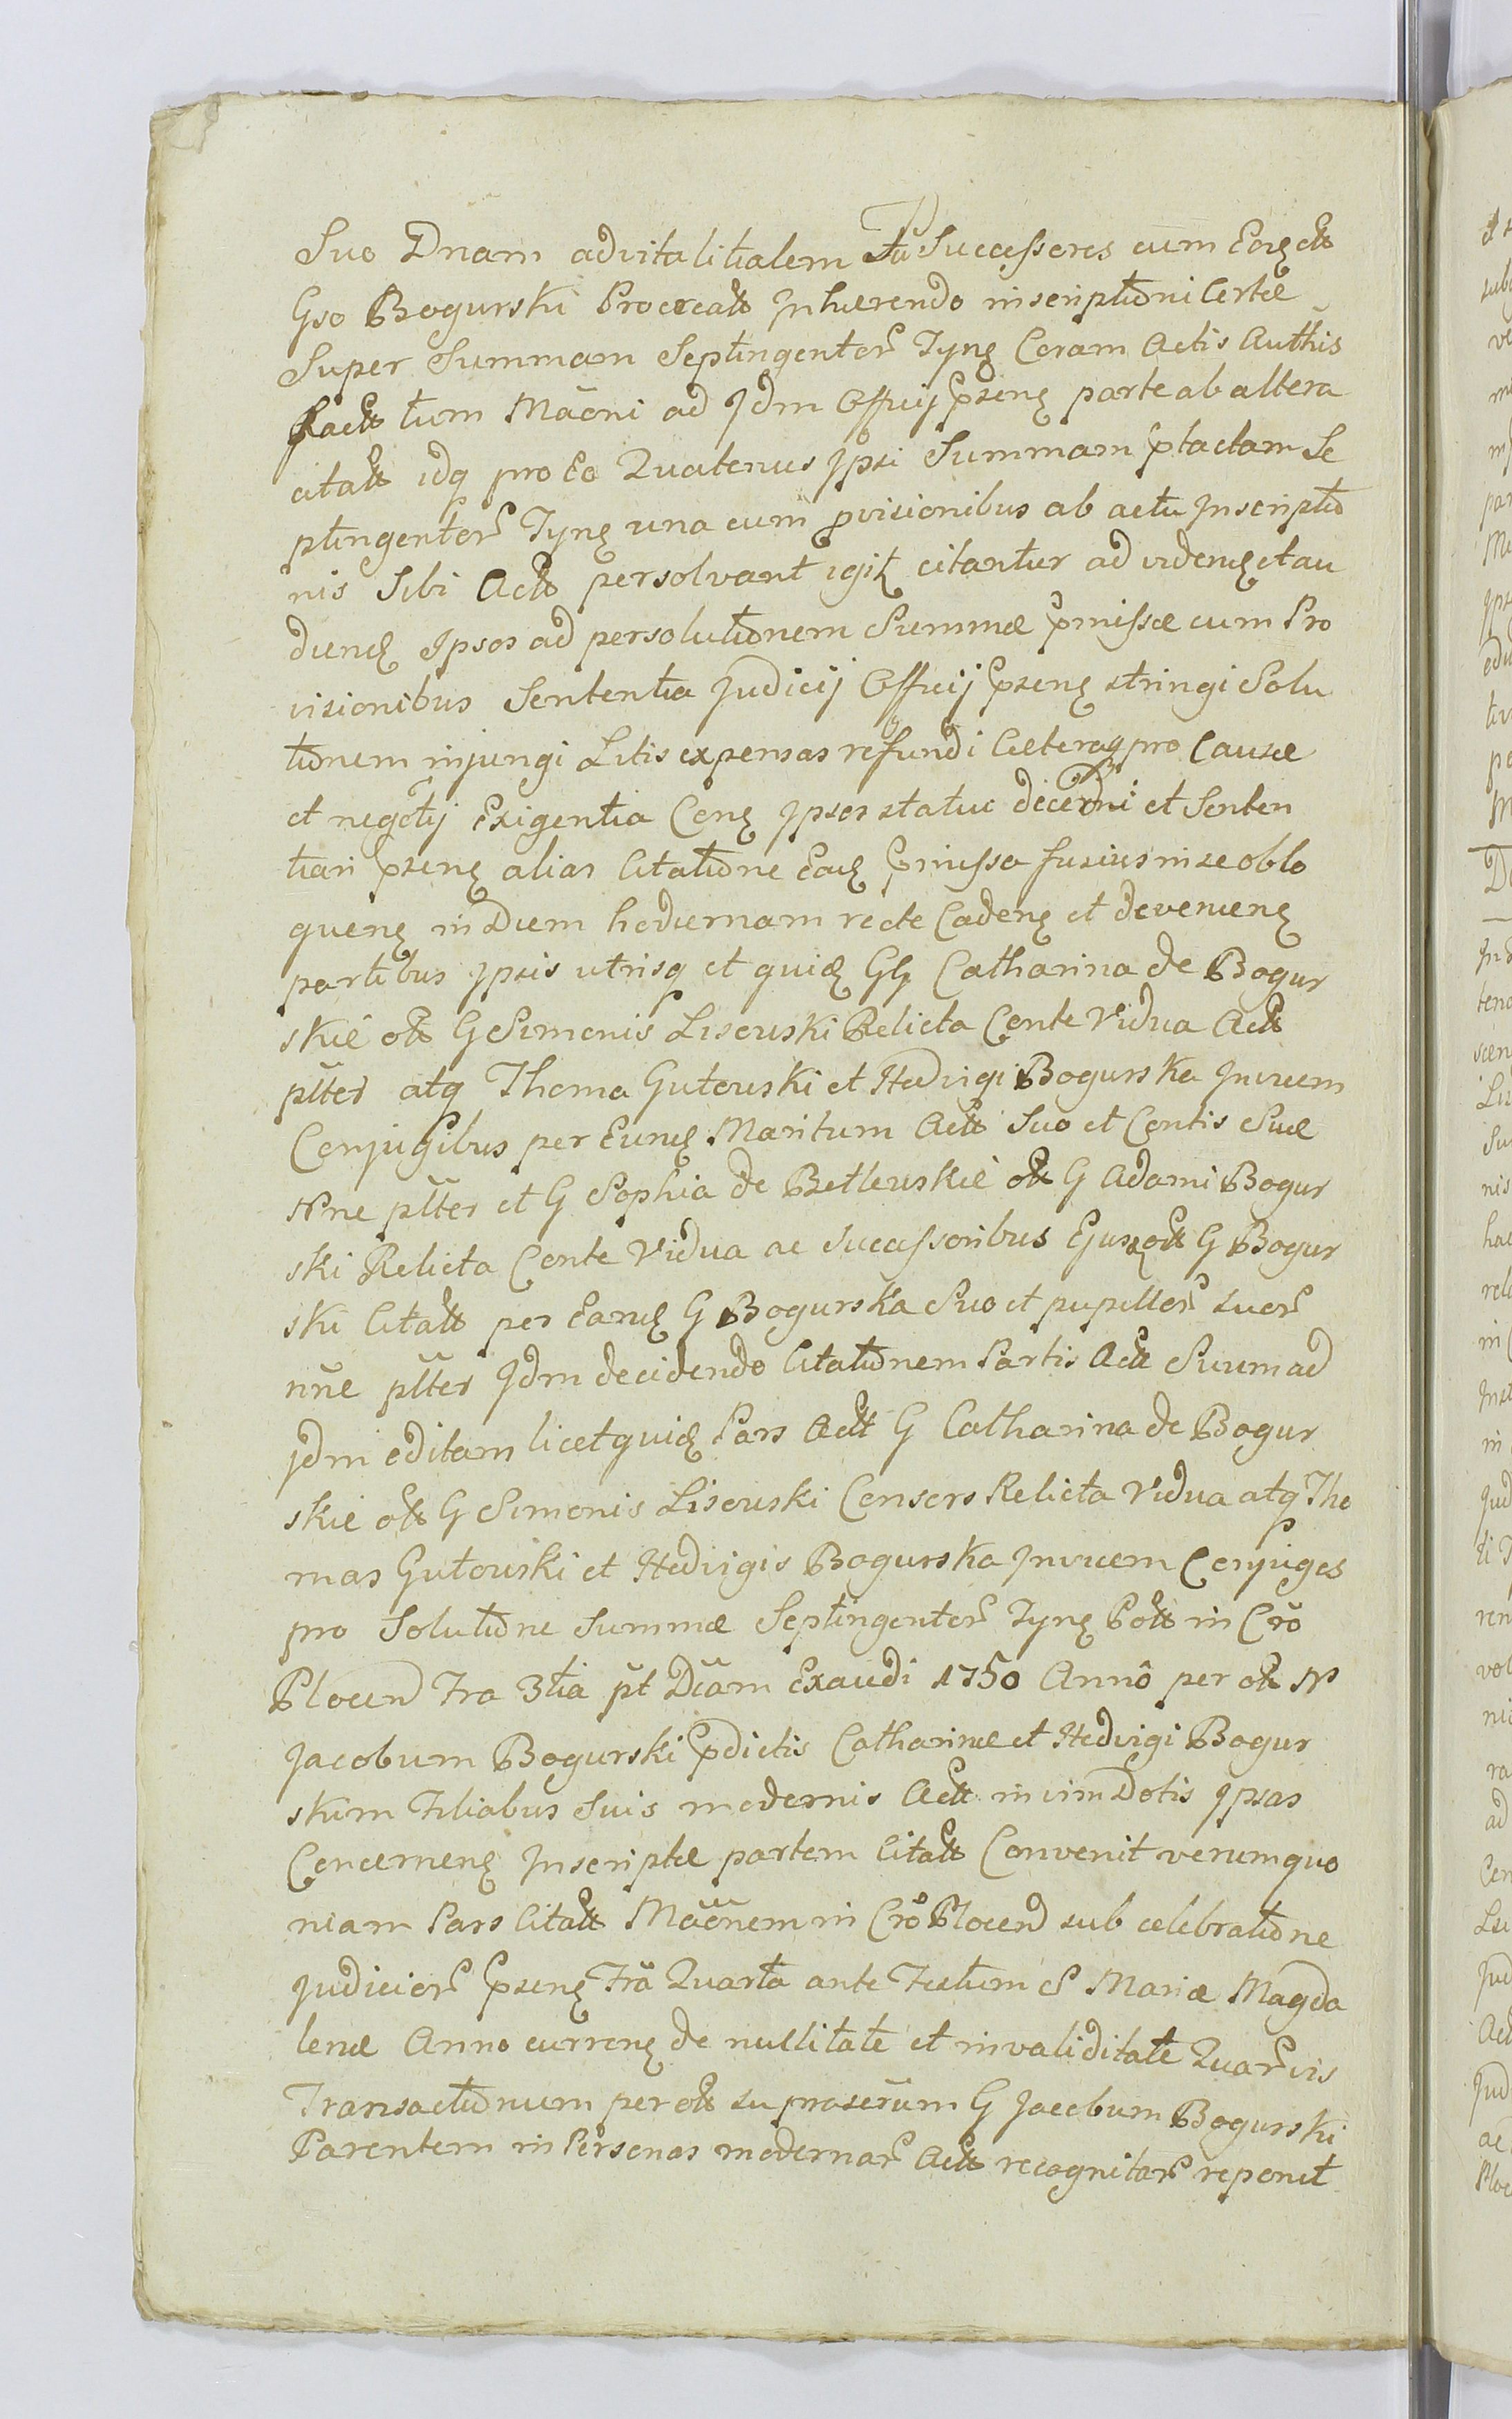 Suo Dnam advitalitialem Tu Successores cum Eoq olt
Gso Bogurski Procreatt Jnhærendo inscriptioni Certæ
Super Summam Septingentor Tyng Coram Actis Authis
Factt tum Maoni ad Jdm Officij Pseng parte ab altera
citatt idq pro Eo Quatenus Jpsi Summam Ptactam Se
ptingentor Tyng una cum pvisionibus ab actu Jnscriptio
nis Sibi Actt persolvant igit citantur ad videnq et au
dienq Ipsos ad persolutionem Summæ Pmissæ cum Pro
visionibus Sententia Judicij Officij Pseng stringi Solu
tionem injungi Litis expensas refundi Cæteraq pro Causæ
et negotij Exigentia Ceng Jpsos statui decerni et Senten
tiari Pseng alias Citatione Eadq Pmissa fusius in se oblo
queng in Diem hodiernam recte Cadeng et devenieng
partibus Jpsis utrisq et quidq GG Catharina de Bogur
skie olt G Simonis Lisowski Relicta Conte Vidua Actt
plter atq Thoma Gutowski et Hedvigi Bogurska Jnvicem
Conjugibus per Eundq Maritum Actt Suo et Contis Suæ
Nne plter et G Sophia de Betlewskie olt G Adami Bogur
ski Relicta Conte Vidua ac Successoribus Ejusq olt G Bogur
ski Citatt per Eandq G Bogurska Suo et pupillor suor
nne plter Jdm decidendo Citationem Partis Actt Suum ad
Jdm editam licet quidq Pars Actt G Catharina de Bogur
skie olt G Simonis Lisowski Consors Relicta Vidua atq Tho
mas Gutowski et Hedvigis Bogurska Jnvicem Conjuges
pro Solutione Summæ Septingentor Tyng Polt in Cro
Plocen Fra 3tia pt Dcam Exaudi 1750 Anno per olt N
Jacobum Bogurski Pdictis Catharinæ et Hedvigi Bogur
skim Filiabus Suis modernis Actt in vim Dotis Jpsas
Concerneng Jnscriptæ partem Citatt Convenit verum quo
niam Pars Citatt Maonem in Cro Plocen sub celebratione
Judicior Pseng Fra Quarta ante Festum S Mariæ Magda
lenæ Anno curreng de nullitate et invaliditate Quarvis
Transactionum per olt supraserium G Jacobum Bogurski
Parentem in Personas modernar Actt recognitar reponit